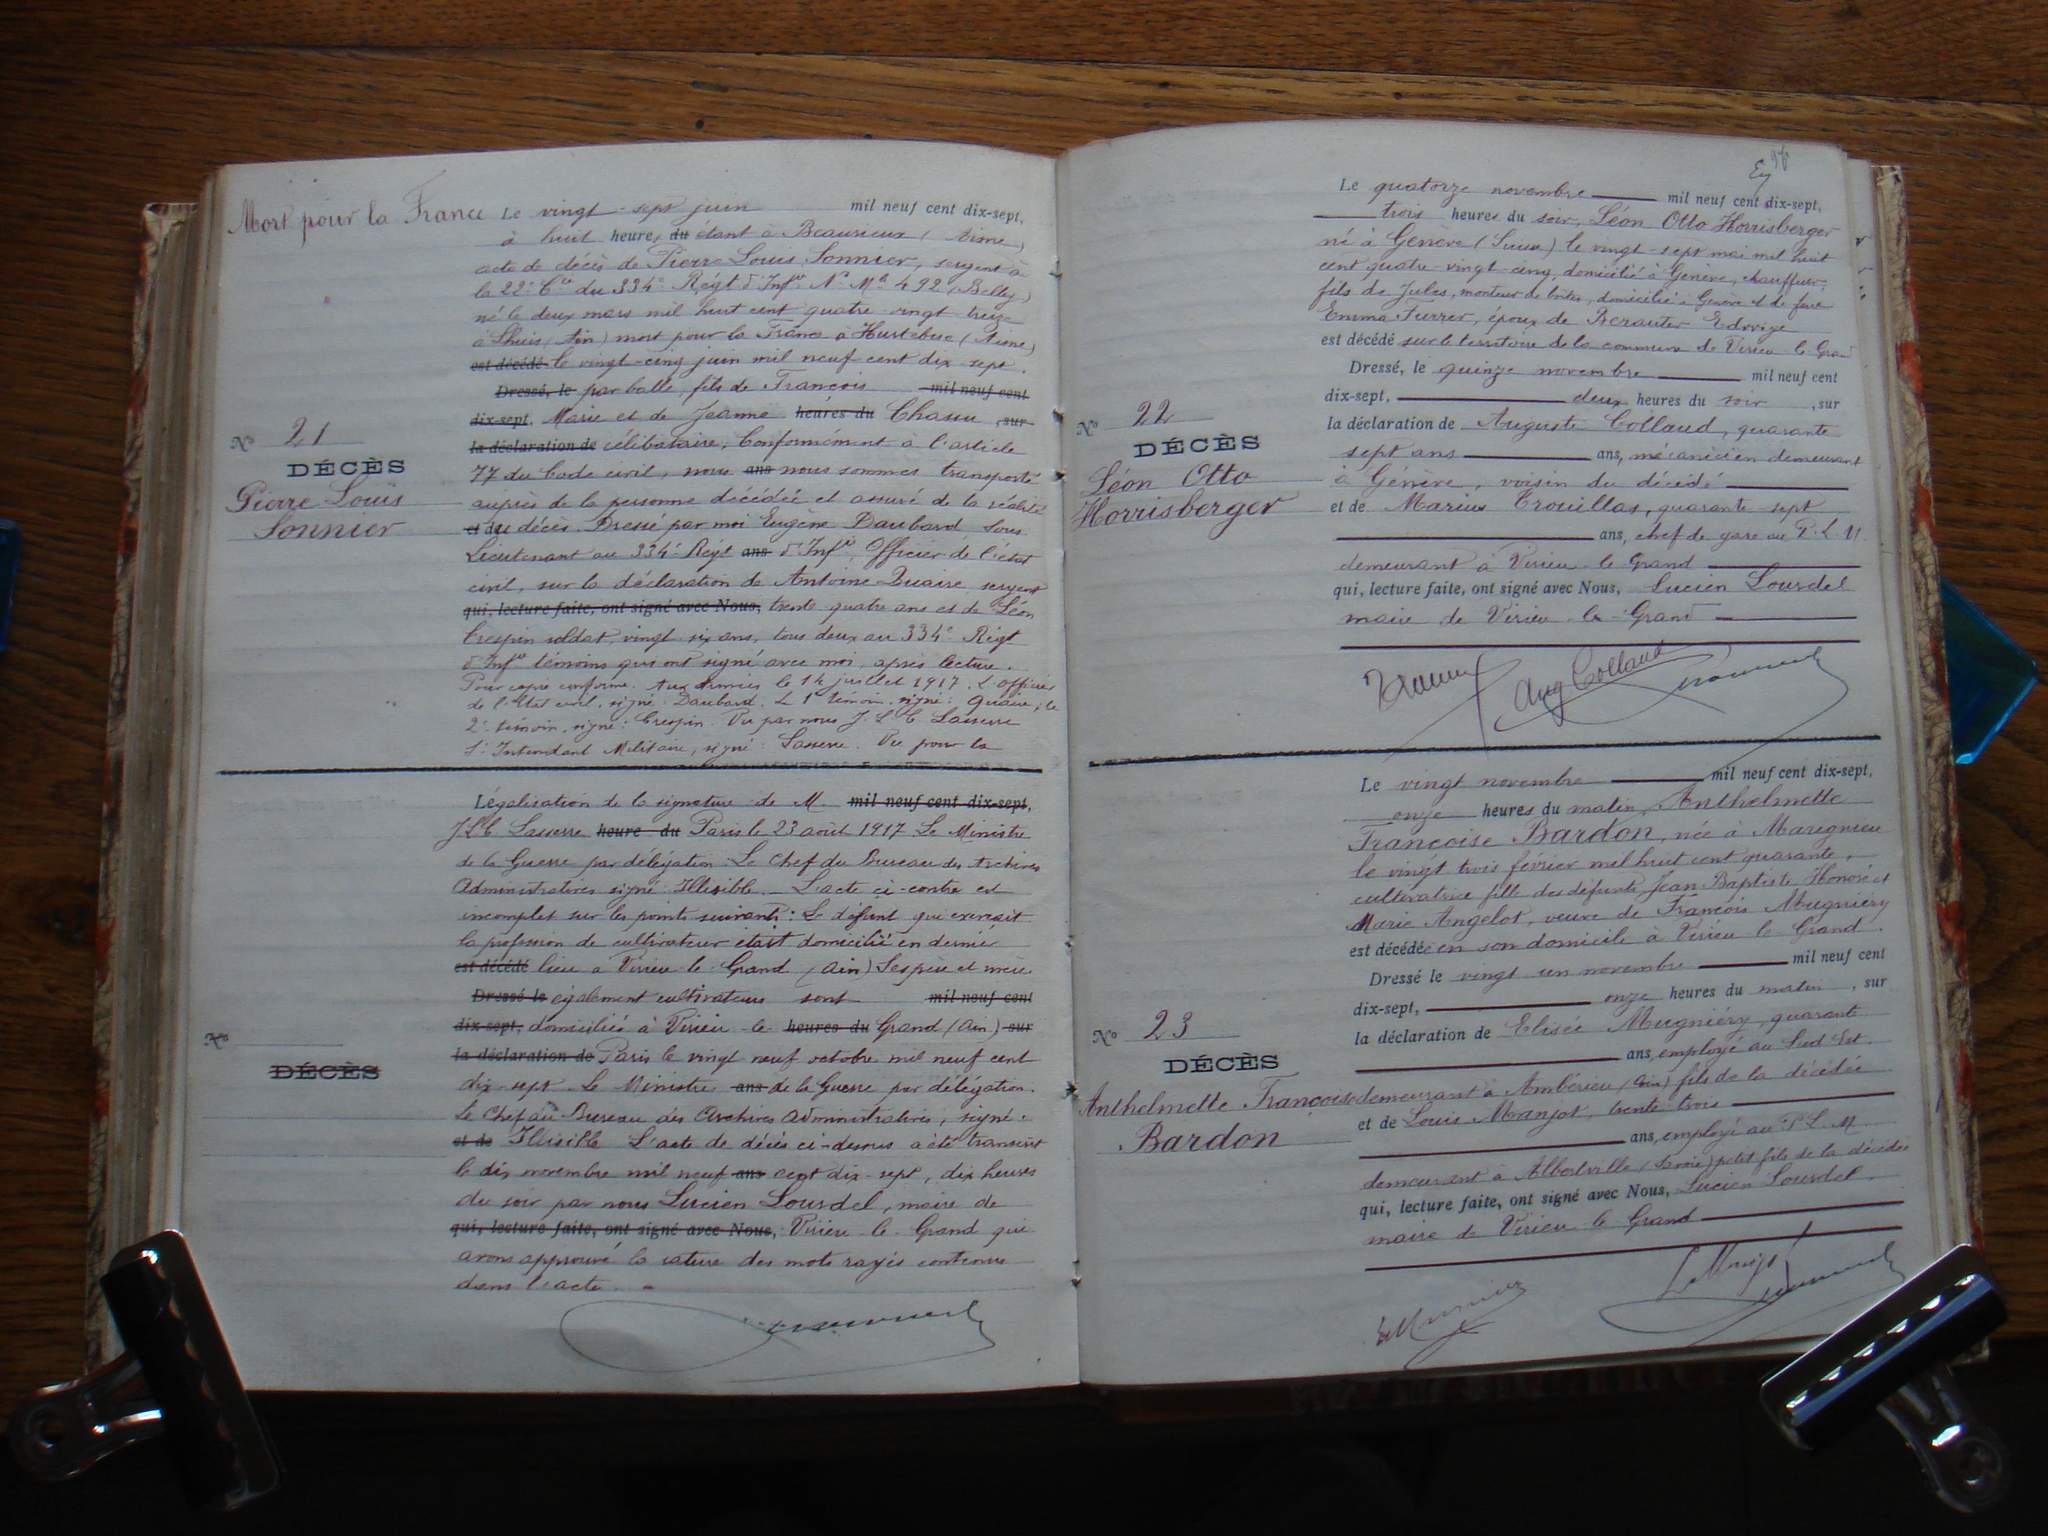 Mort pour la France
Le vingt-sept juin mil neuf cent dix-sept,
à huit heures du étant à Beaurieux (Aisne)
acte de décès de Pierre Louis Sonnier, sergent à
la 22e Cie du 334e Régt d'Infie No Mle 492 (Belley)
né le deux mars mil huit cent quatre vingt treize
à Lhuis (Ain) mort pour la France à Hurtebise (Aisne)
est décédé le vingt-cinq juin mil neuf cent dix sept.
Dressé, le par balle, fils de François mil neuf cent
dix-sept, Marie et de Jeanne heures du Chanu, sur
la déclaration de célibataire, Conformément à l'article
77 du Code civil, nous ans nous sommes transporté
auprès de la personne décédée et assuré de la réalité
et de du décès. Dressé par moi Eugène Daubard Sous
Lieutenant au 334e Régt ans d'Infie, Officier de l'état
civil, sur la déclaration de Antoine Quaire, sergent
qui, lecture faite, ont signé avec Nous, trente quatre ans et de Léon
Crespin soldat, vingt six ans, tous deux au 334e Régt
d'Infie témoins qui ont signé avec moi, après lecture.
Pour copie conforme. Aux armées le 14 juillet 1917. L'officier
de l'Etat civil, signé: Daubard. Le 1er témoin, signé: Quaire; le
2e témoin, signé: Crespin. Vu par nous J L C Lasserre
S. Intendant Militaire, signé: Lasserre. Vu pour la
No 21
DÉCÈS
Pierre Louis
Sonnier
Légalisation de la signature de M. mil neuf cent dix-sept,
J L C Lasserre heure du Paris le 23 août 1917 Le Ministre
de la Guerre par délégation. Le Chef du Bureau des Archives
Administratives signé: Illisible. L'acte ci-contre est
incomplet sur les points suivants: Le défunt qui exerçait
la profession de cultivateur était domicilié en dernier
est décédé lieu à Virieu-le-Grand (Ain) Ses père et mère
Dressé le également cultivateurs sont mil neuf cent
dix-sept, domiciliés à Virieu-le heures du Grand (Ain) sur
la déclaration de Paris le vingt neuf octobre mil neuf cent
dix-sept. Le Ministre ans de la Guerre par délégation.
Le Chef du Bureau des Archives Administratives, signé:
et de Illisible L'acte de décès ci-dessus a été transcrit
le dix novembre mil neuf ans cent dix-sept, dix heures
du soir par nous Lucien Lourdel, maire de
qui, lecture faite, ont signé avec Nous, Virieu-le-Grand qui
avons approuvé la rature des mots rayés contenus
dans l'acte.
No
DÉCÈS
Le quatorze novembre mil neuf cent dix-sept,
trois heures du soir, Léon Otto Horrisberger
né à Genève (Suisse) le vingt-sept mai mil huit
cent quatre-vingt-cinq, domicilié à Genève, chauffeur,
fils de Jules, monteur de boîtes, domicilié à Genève et de feue
Emma Furrer, époux de Berauter Edwige
est décédé sur le territoire de la commune de Virieu-le-Grand
Dressé, le quinze novembre mil neuf cent
dix-sept, deux heures du soir, sur
la déclaration de Auguste Collaud, quarante
sept ans ans, mécanicien demeurant
à Genève, voisin du décédé
et de Marius Trouillas, quarante-sept
ans, chef de gare au P.L.M.
demeurant à Virieu-le-Grand
qui, lecture faite, ont signé avec Nous, Lucien Lourdel
maire de Virieu-le-Grand
Aug Collaud
No 22
DÉCÈS
Léon Otto
Horrisberger
Le vingt novembre mil neuf cent dix-sept,
onze heures du matin, Anthelmette
Françoise Bardon, née à Marignieu
le vingt trois février mil huit cent quarante,
cultivatrice fille des défunts Jean Baptiste Honoré et
Marie Angelot, veuve de François Mugniéry
est décédée en son domicile à Virieu-le-Grand.
Dressé le vingt un novembre mil neuf cent
dix-sept, onze heures du matin, sur
la déclaration de Elisée Mugniéry, quarante
ans, employé au Sud Est.
demeurant à Ambérieu (Ain) fils de la décédée
et de Louis Manjot, trente-trois
ans, employé au P L M
demeurant à Albertville (Savoie) petit fils de la décédée
qui, lecture faite, ont signé avec Nous, Lucien Lourdel,
maire de Virieu-le-Grand
No 23
DÉCÈS
Anthelmette Françoise
Bardon